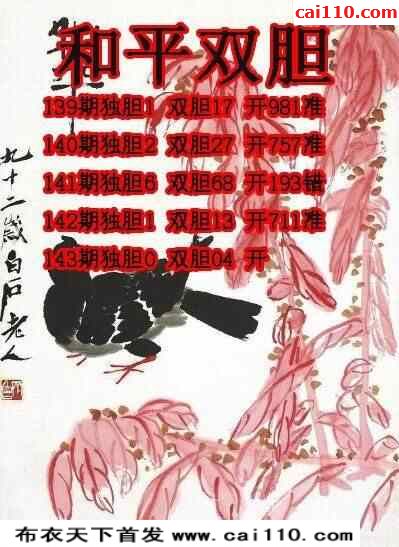 cai110.com
和平双胆
139期独胆1 双胆17 开981准
140期独胆2 双胆27 开757准
141期独胆6 双胆68 开193错
142期独胆1 双胆13 开711准
143期独胆0 双胆04 开
九十二岁白石老人
布衣天下首发 www.cai110.com